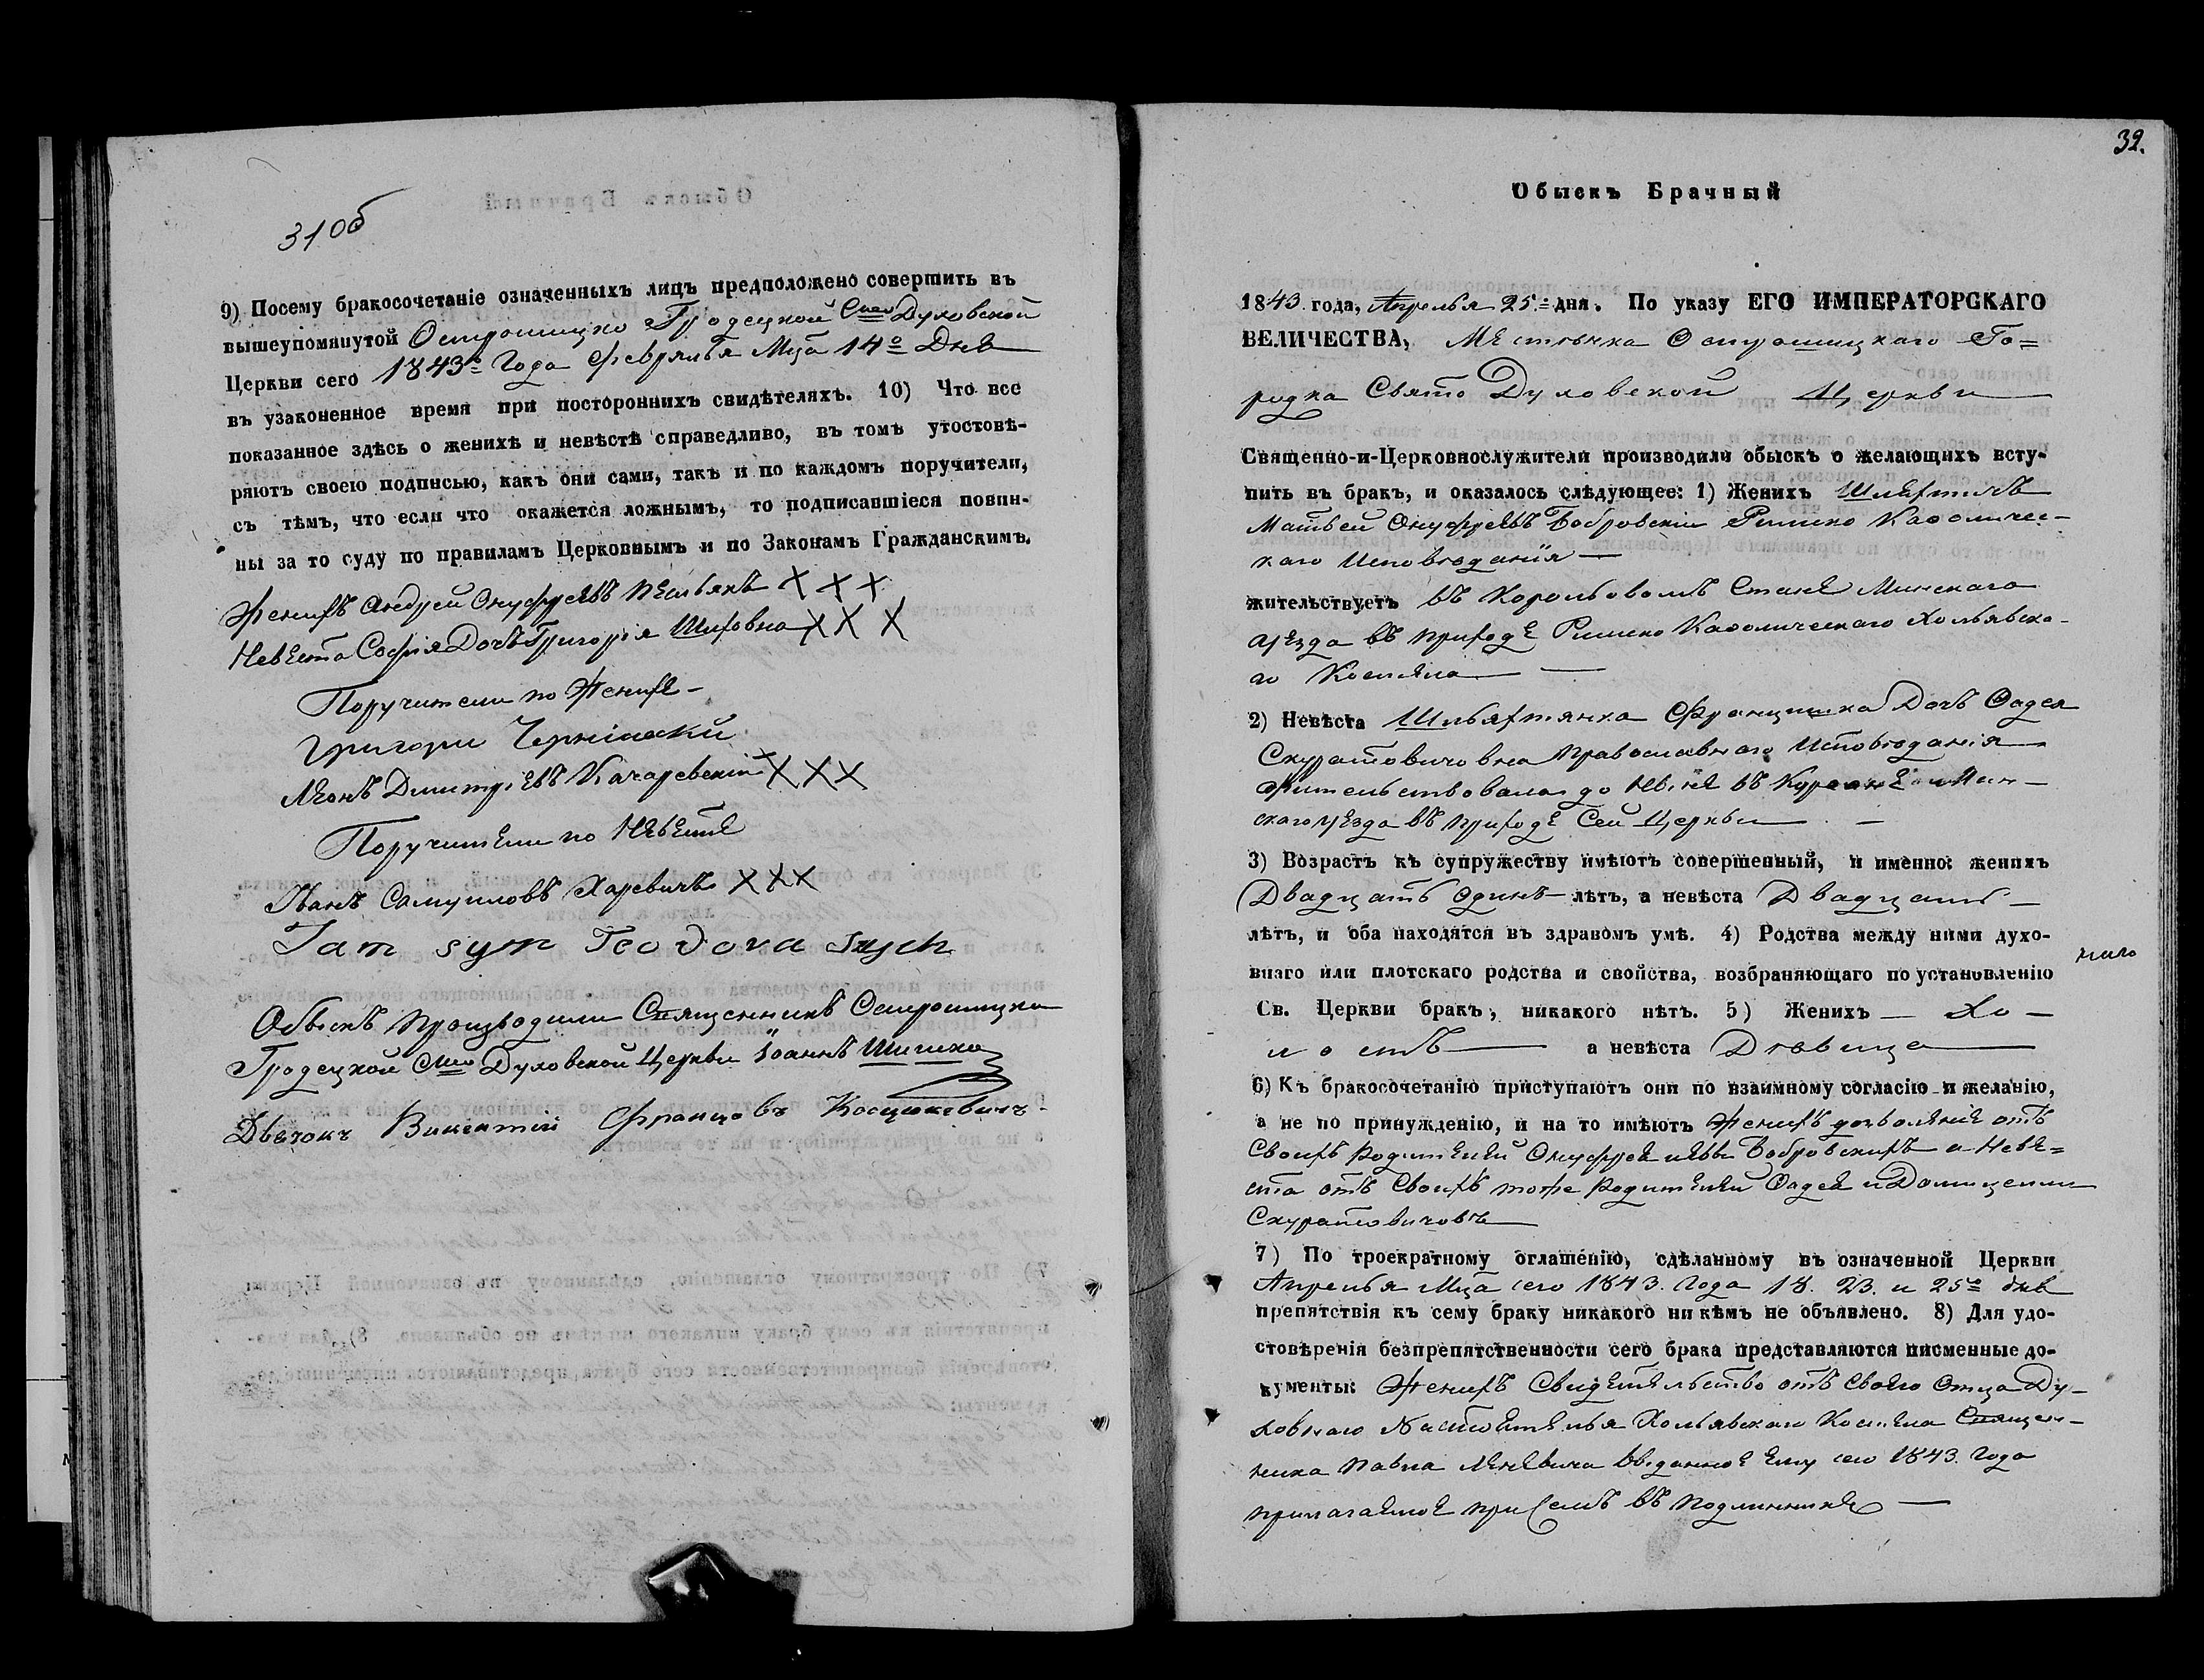 31 об
9) Посему бракосочетаніе означенныхъ лицъ предположено совершить въ
вышеупомянутой Острошицко Гродецкой Свято Духовской
Церкви сего 1843º Года Февраля Мца 14º Дня
въ узаконенное время при постороннихъ свидѣтеляхъ. 10) Что все
показанное здѣсь о женихѣ и невѣстѣ справедливо, въ томъ утостовѣ-
ряютъ своею подписью, какъ они сами, такъ и по каждомъ поручители,
съ тѣмъ, что если что окажется ложнымъ, то подписавшіеся повин-
ны за то суду по правиламъ Церковнымъ и по Законамъ Гражданскимъ.
Женихъ Андрей Онуфріевъ XXX
Невѣста Софія Дочъ Григорія XXX
Поручители по Женихѣ –
Григори
Леонъ Димитріевъ XXX
Поручители по Невѣстѣ
Иванъ Самуиловъ Харевичъ XXX
Jam syn Teodora
Обыскъ Производили Священникъ Острошицко
Гродецкой Свято Духовской Церкви Іоаннъ
Дьячокъ Викентій Францовъ Косцюкевичъ
32.
Обыскъ Брачный
1843. года, Апрелья 25.º дня. По указу ЕГО ИМПЕРАТОРСКАГО
ВЕЛИЧЕСТВА, Мѣстечка Острошицкаго Го=
родка Свято Духовской Церкви
Священно-и-Церковнослужители производили обыскъ о желающихъ всту-
пить въ бракъ, и оказалось слѣдующее: 1) Женихъ Шляхтичъ
Матвей Онуфріевъ Бобровскій Римско Каѳоличес-
каго Исповѣданія —
жительствуетъ въ Корольовомъ Станѣ Минскаго
уѣзда въ приходѣ Римско Каѳолическаго Хольявска-
го Костела —
2) Невѣста Шльяхтянка Францишка Дочъ Ѳадея
Скуратовичовна Православнаго Исповѣданія
жительствовала до нынѣ въ Мин-
скаго уѣзда въ приходѣ Сей Церкви —
3) Возрастъ къ супружеству имѣютъ совершенный, и именно: женихъ
Двадцать Одинъ лѣтъ, а невѣста Двадцать –
лѣтъ, и оба находятся въ здравомъ умѣ. 4) Родства между ними духо-
внаго или плотскаго родства и свойства, возбраняющаго по установленію
Св. Церкви бракъ, никакого нѣтъ. 5) Женихъ — Хо —
лостъ — а невѣста Дѣвица —
6) Къ бракосочетанію приступаютъ они по взаимному согласію и желанію,
а не по принужденію, и на то имѣютъ Женихъ дозволеніе отъ
Своихъ Родителей Онуфрея и Евы Бобровскихъ а Невѣ=
ста отъ Своихъ тоже Родителей Ѳадея и Домицели
Скуратовичовъ
7) По троекратному оглашенію, сдѣланному въ означенной Церкви
Апрелья Мца сего 1843. Года 18. 23. и 25º дня
препятствія къ сему браку никакого ни кѣмъ не объявлено. 8) Для удо-
стовѣренія безпрепятственности сего брака представляются писменные до-
кументы: Женихъ Свидѣтельство отъ Своего Отца Ду-
ховнаго Настоятелья Хольявскаго Костела Священ-
ника Павла выданное Ему сего 1843. Года
прилагаемое при Семъ въ подлинникѣ —